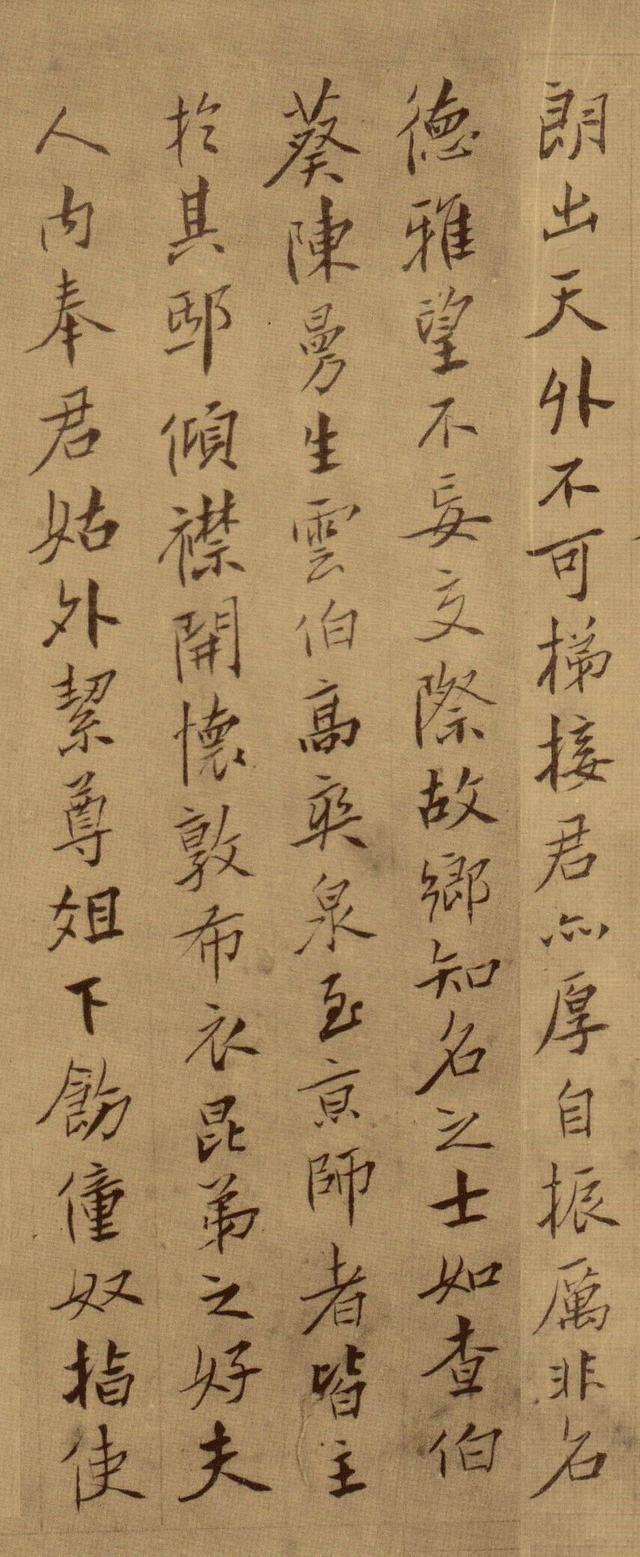 朗出天外不可梯接君亦厚自振厲非名
德雅望不妄交際故鄉知名之士如查伯
葵陳曼生雲伯高爽泉至京師者皆主
於其邸傾襟開懷敦布衣昆弟之好夫
人内奉君姑外絜尊姐下飭僮奴指使